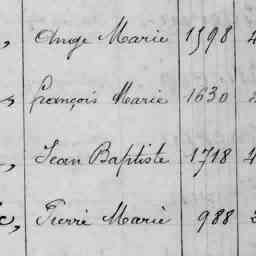 Ange Marie 1598 4
François Marie 1630
Jean Baptiste 1718 4
Pierre Marie 988